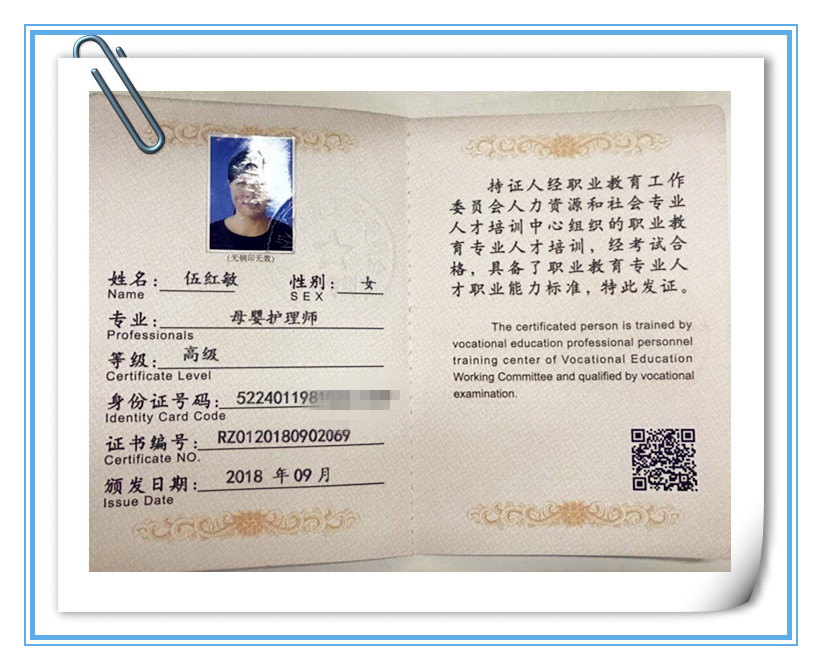 (无钢印无效)
姓名: 伍红敏 性别: 女
Name SEX
专业: 母婴护理师
Professionals
等级: 高级
Certificate Level
身份证号码: 5224011981
Identity Card Code
证书编号: RZ0120180902069
Certificate NO.
颁发日期: 2018 年 09 月
Issue Date
持证人经职业教育工作
委员会人力资源和社会专业
人才培训中心组织的职业教
育专业人才培训，经考试合
格，具备了职业教育专业人
才职业能力标准，特此发证。
The certificated person is trained by
vocational education professional personnel
training center of Vocational Education
Working Committee and qualified by vocational
examination.